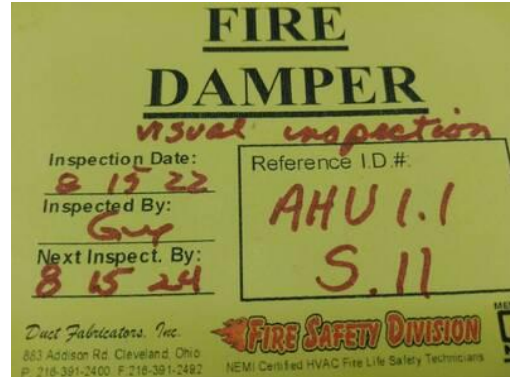 FIRE
DAMPER
visual inspection
Inspection Date:
8 15 22
Inspected By:
Guy
Next Inspect. By:
8 15 24
Reference I.D.#:
AHU 1.1
S.11
Duct Fabricators, Inc.
883 Addison Rd. Cleveland, Ohio
P. 216-391-2400 F:216-391-2492
FIRE SAFETY DIVISION
NEMI Certified HVAC Fire Life Safety Technicians